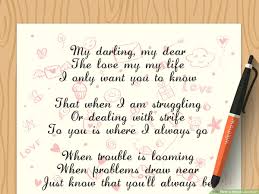 My darling, my dear
The love my my life
I only want you to know
That when I am struggling
Or dealing with strife
To you is where I always go
When trouble is looming
When problems draw near
Just know that you'll always be